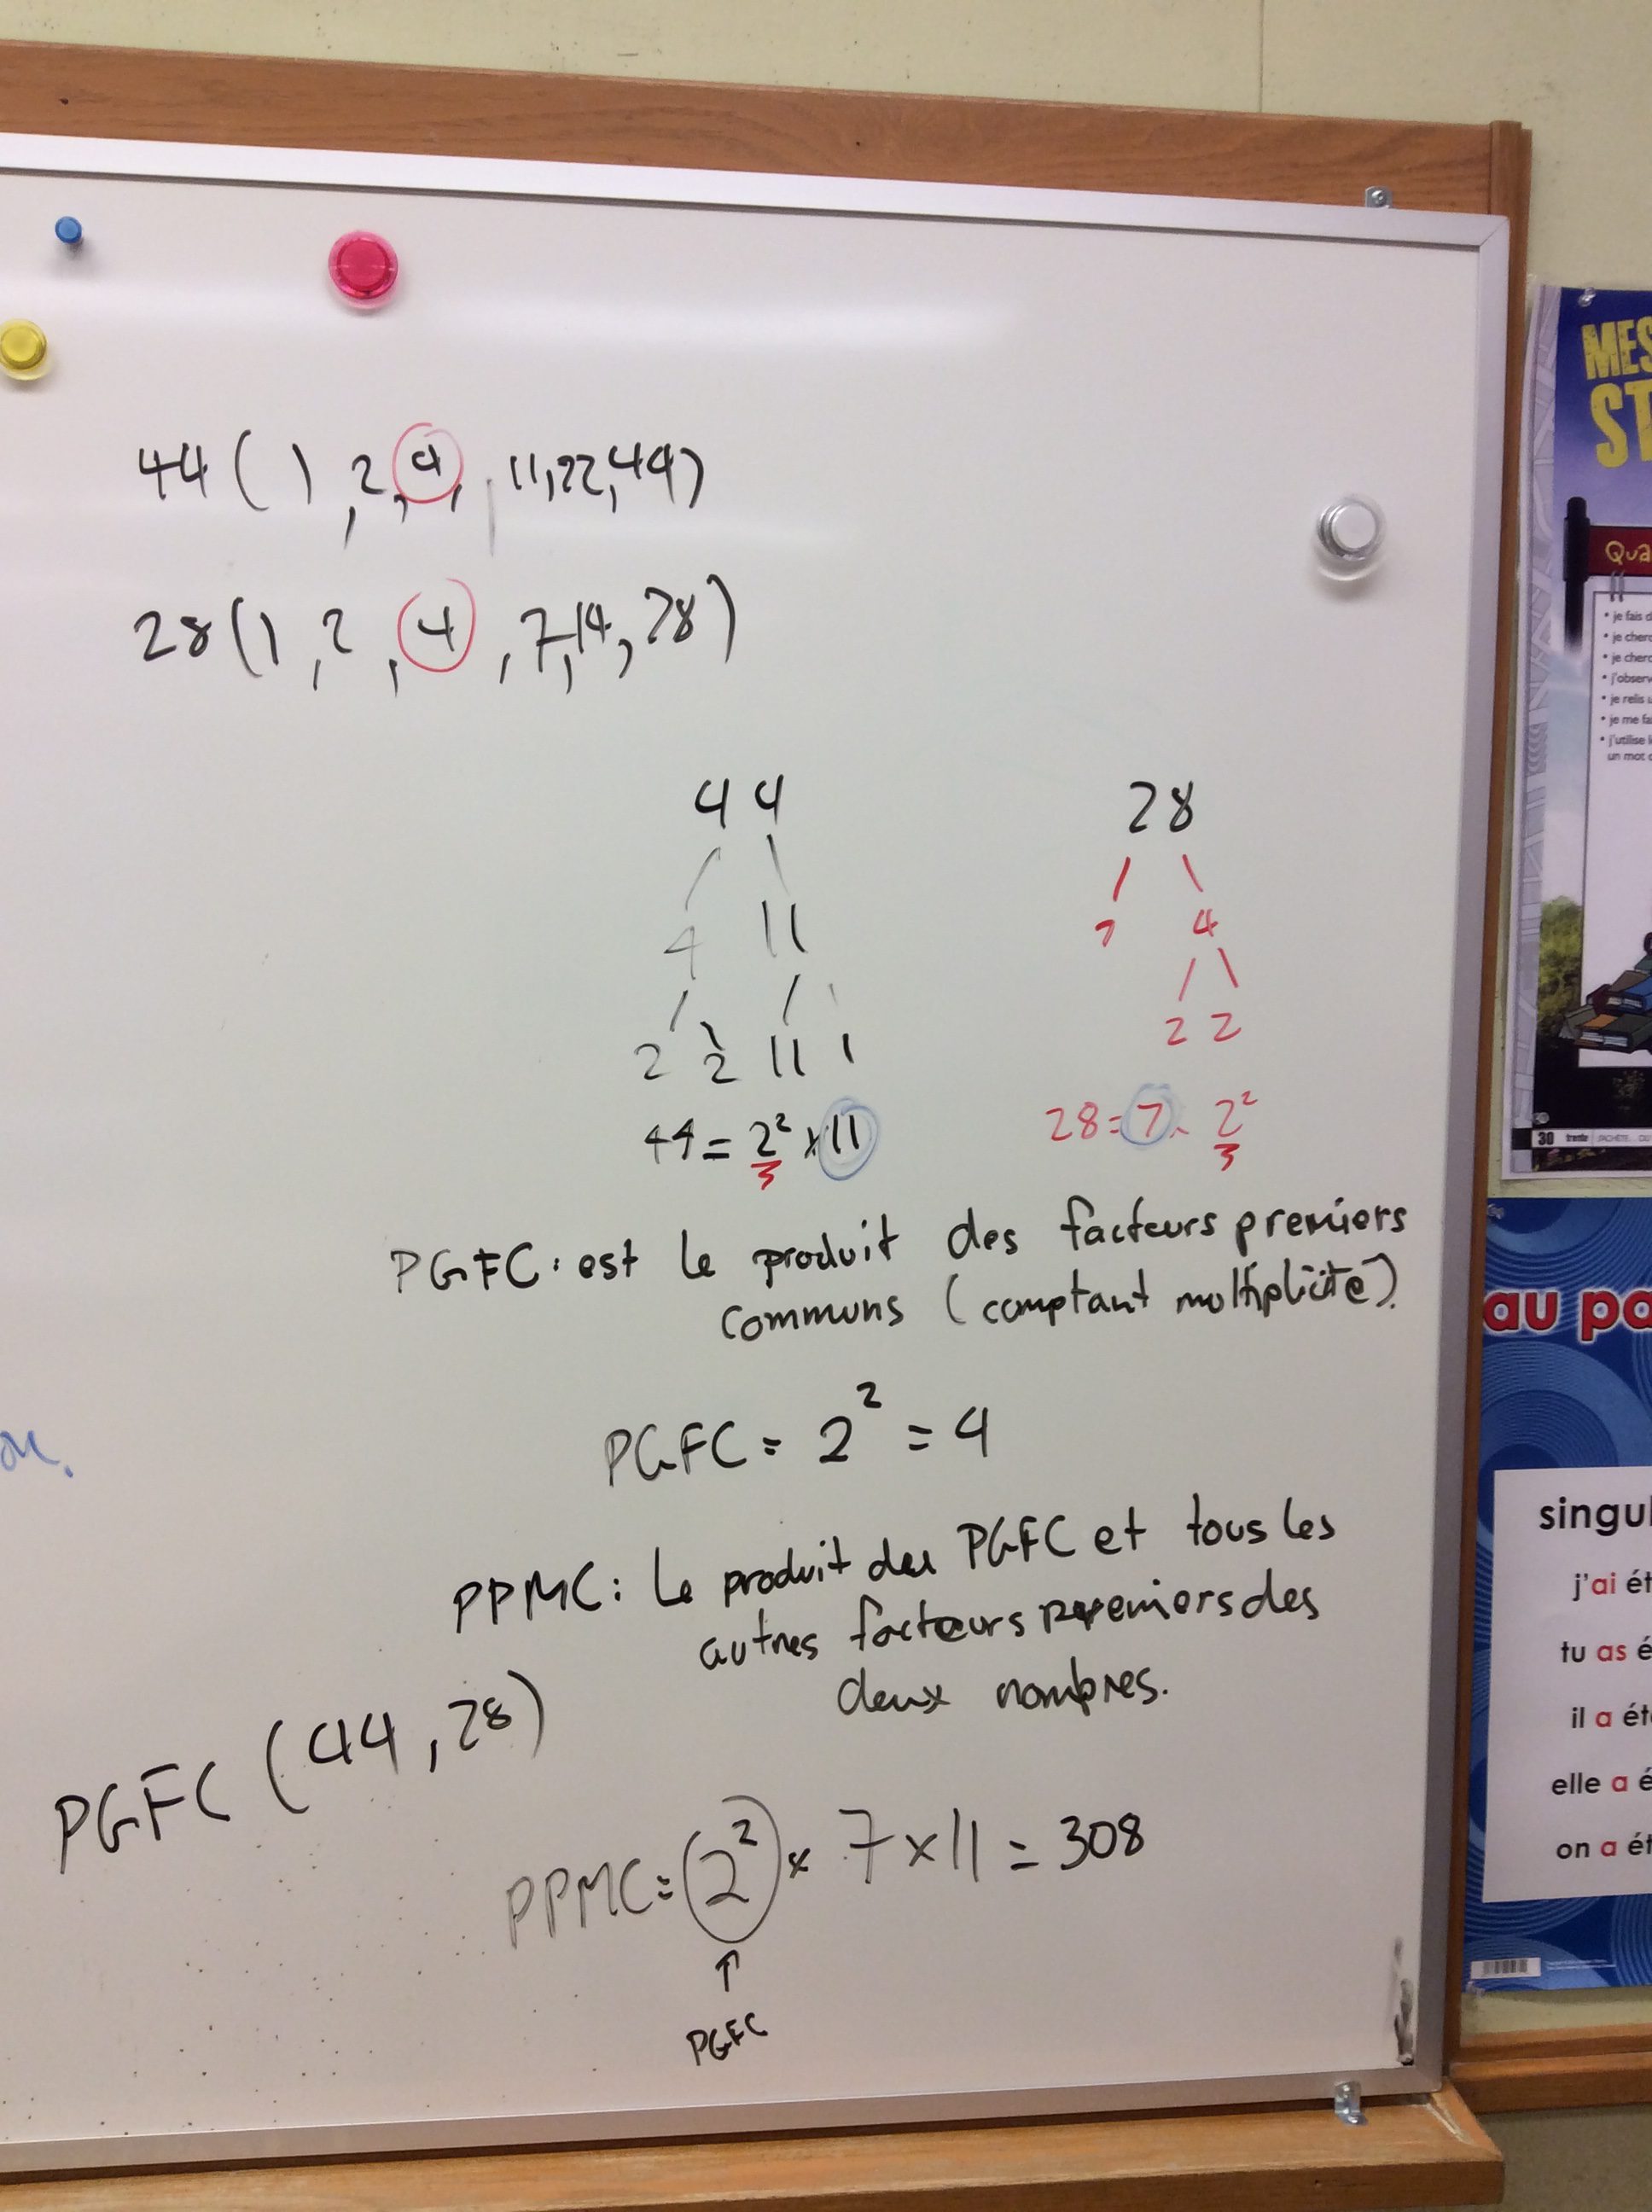 44 ( 1, 2, 4, 11, 22, 44)
28 (1, 2, 4, 7, 14, 28)
44
4 11
2 2 11 1
44 = 2² × 11
28
7 4
2 2
28 = 7 · 2²
PGFC: est le produit des facteurs premiers
communs (comptant multiplicité).
PGFC = 2² = 4
PPMC: Le produit du PGFC et tous les
autres facteurs premiers des
deux nombres.
PGFC (44, 28)
PPMC = (2²) × 7 × 11 = 308
↑
PGFC
MES
ST
Qua
• je fais d
• je cherc
• je cherc
• j'observ
• je relis u
• je me fa
• j'utilise l
un mot
30 trente
au pa
singul
j'ai ét
tu as é
il a ét
elle a é
on a ét